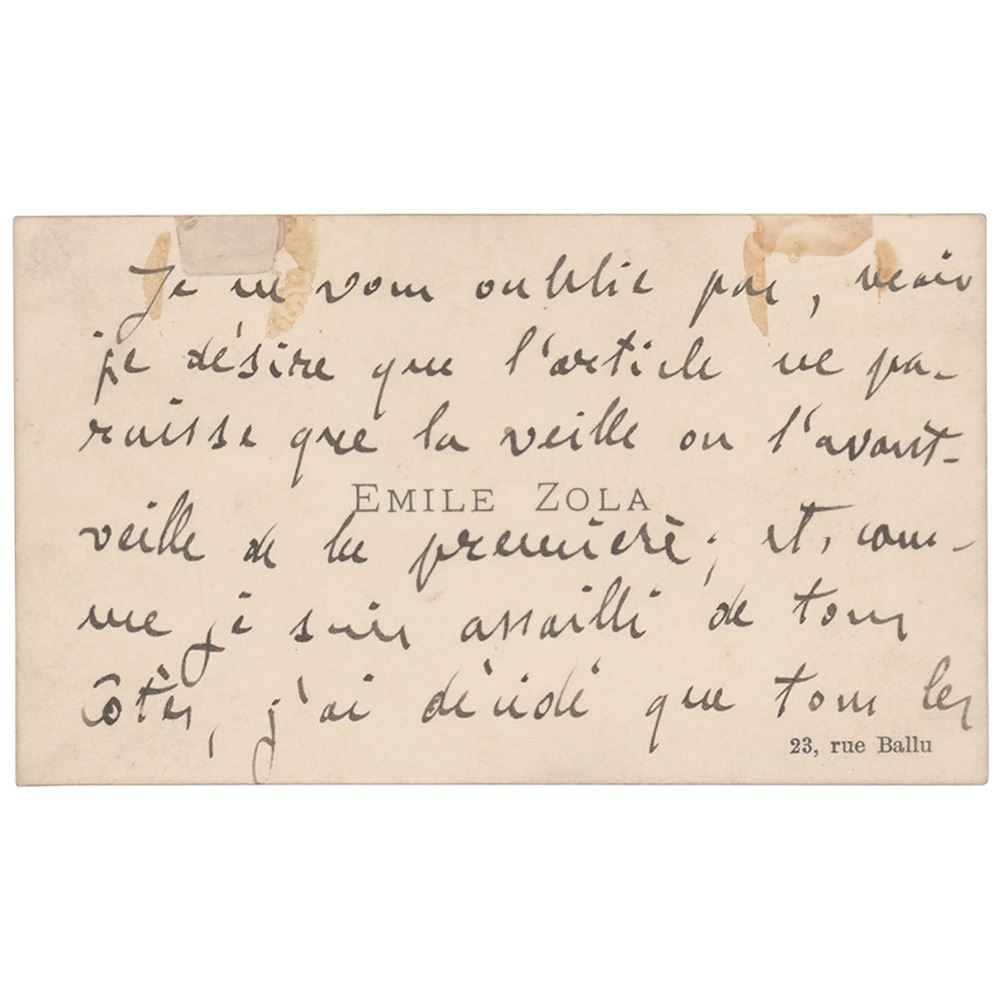 Je ne vous oublie pas, mais
je désire que l'article ne pa-
raisse que la veille ou l'avant-
EMILE ZOLA
veille de la première; et, com-
me je suis assailli de tous
côtés, j'ai décidé que tous les
23, rue Ballu